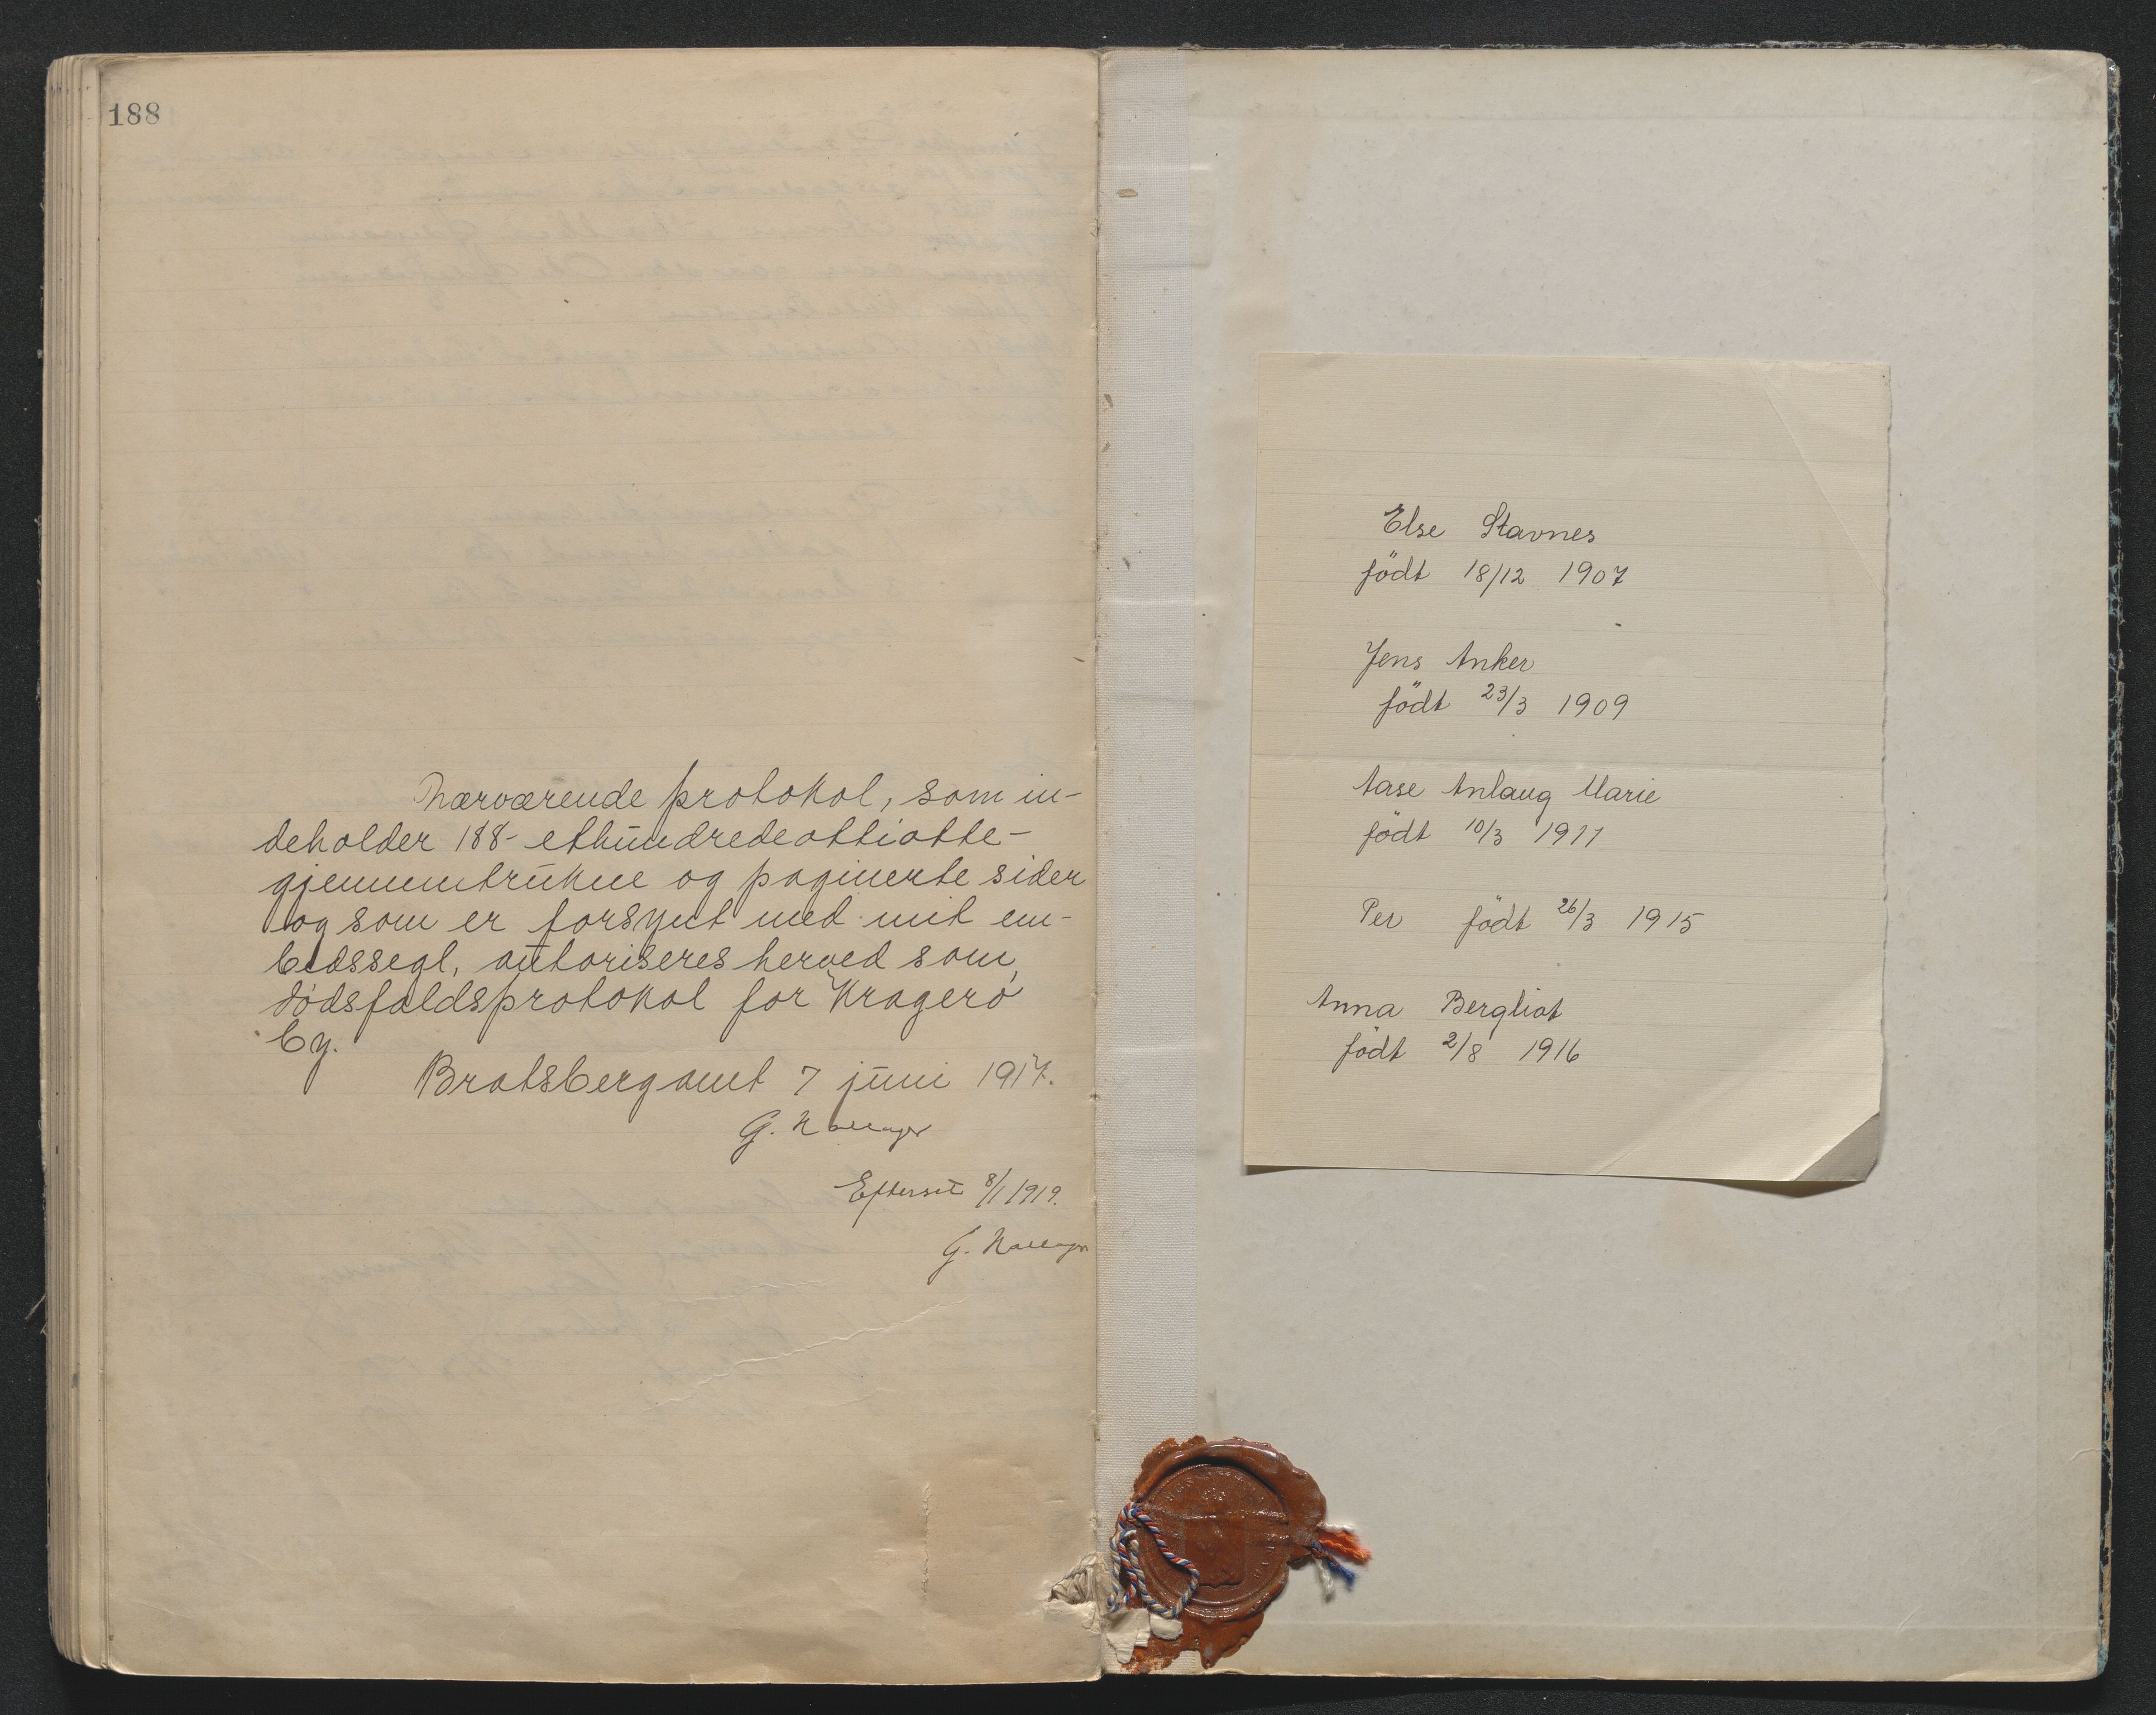 188
Nærværende protokol, som in-
deholder 188 - ethundredeottiotte -
gjennemtrukne og paginerte sider
og som er forsynt med mit em-
bedssegl, autoriseres herved som
dødsfaldsprotokol for Kragerø
by.
Bratsberg amt 7 juni 1917.
G.
Efterset 8/1 1919.
G.
Else Stavnes
födt 18/12 1907
Jens Anker
födt 23/3 1909
Aase Anlaug Marie
födt 10/3 1911
Per födt 26/3 1915
Anna Bergliot
födt 2/8 1916